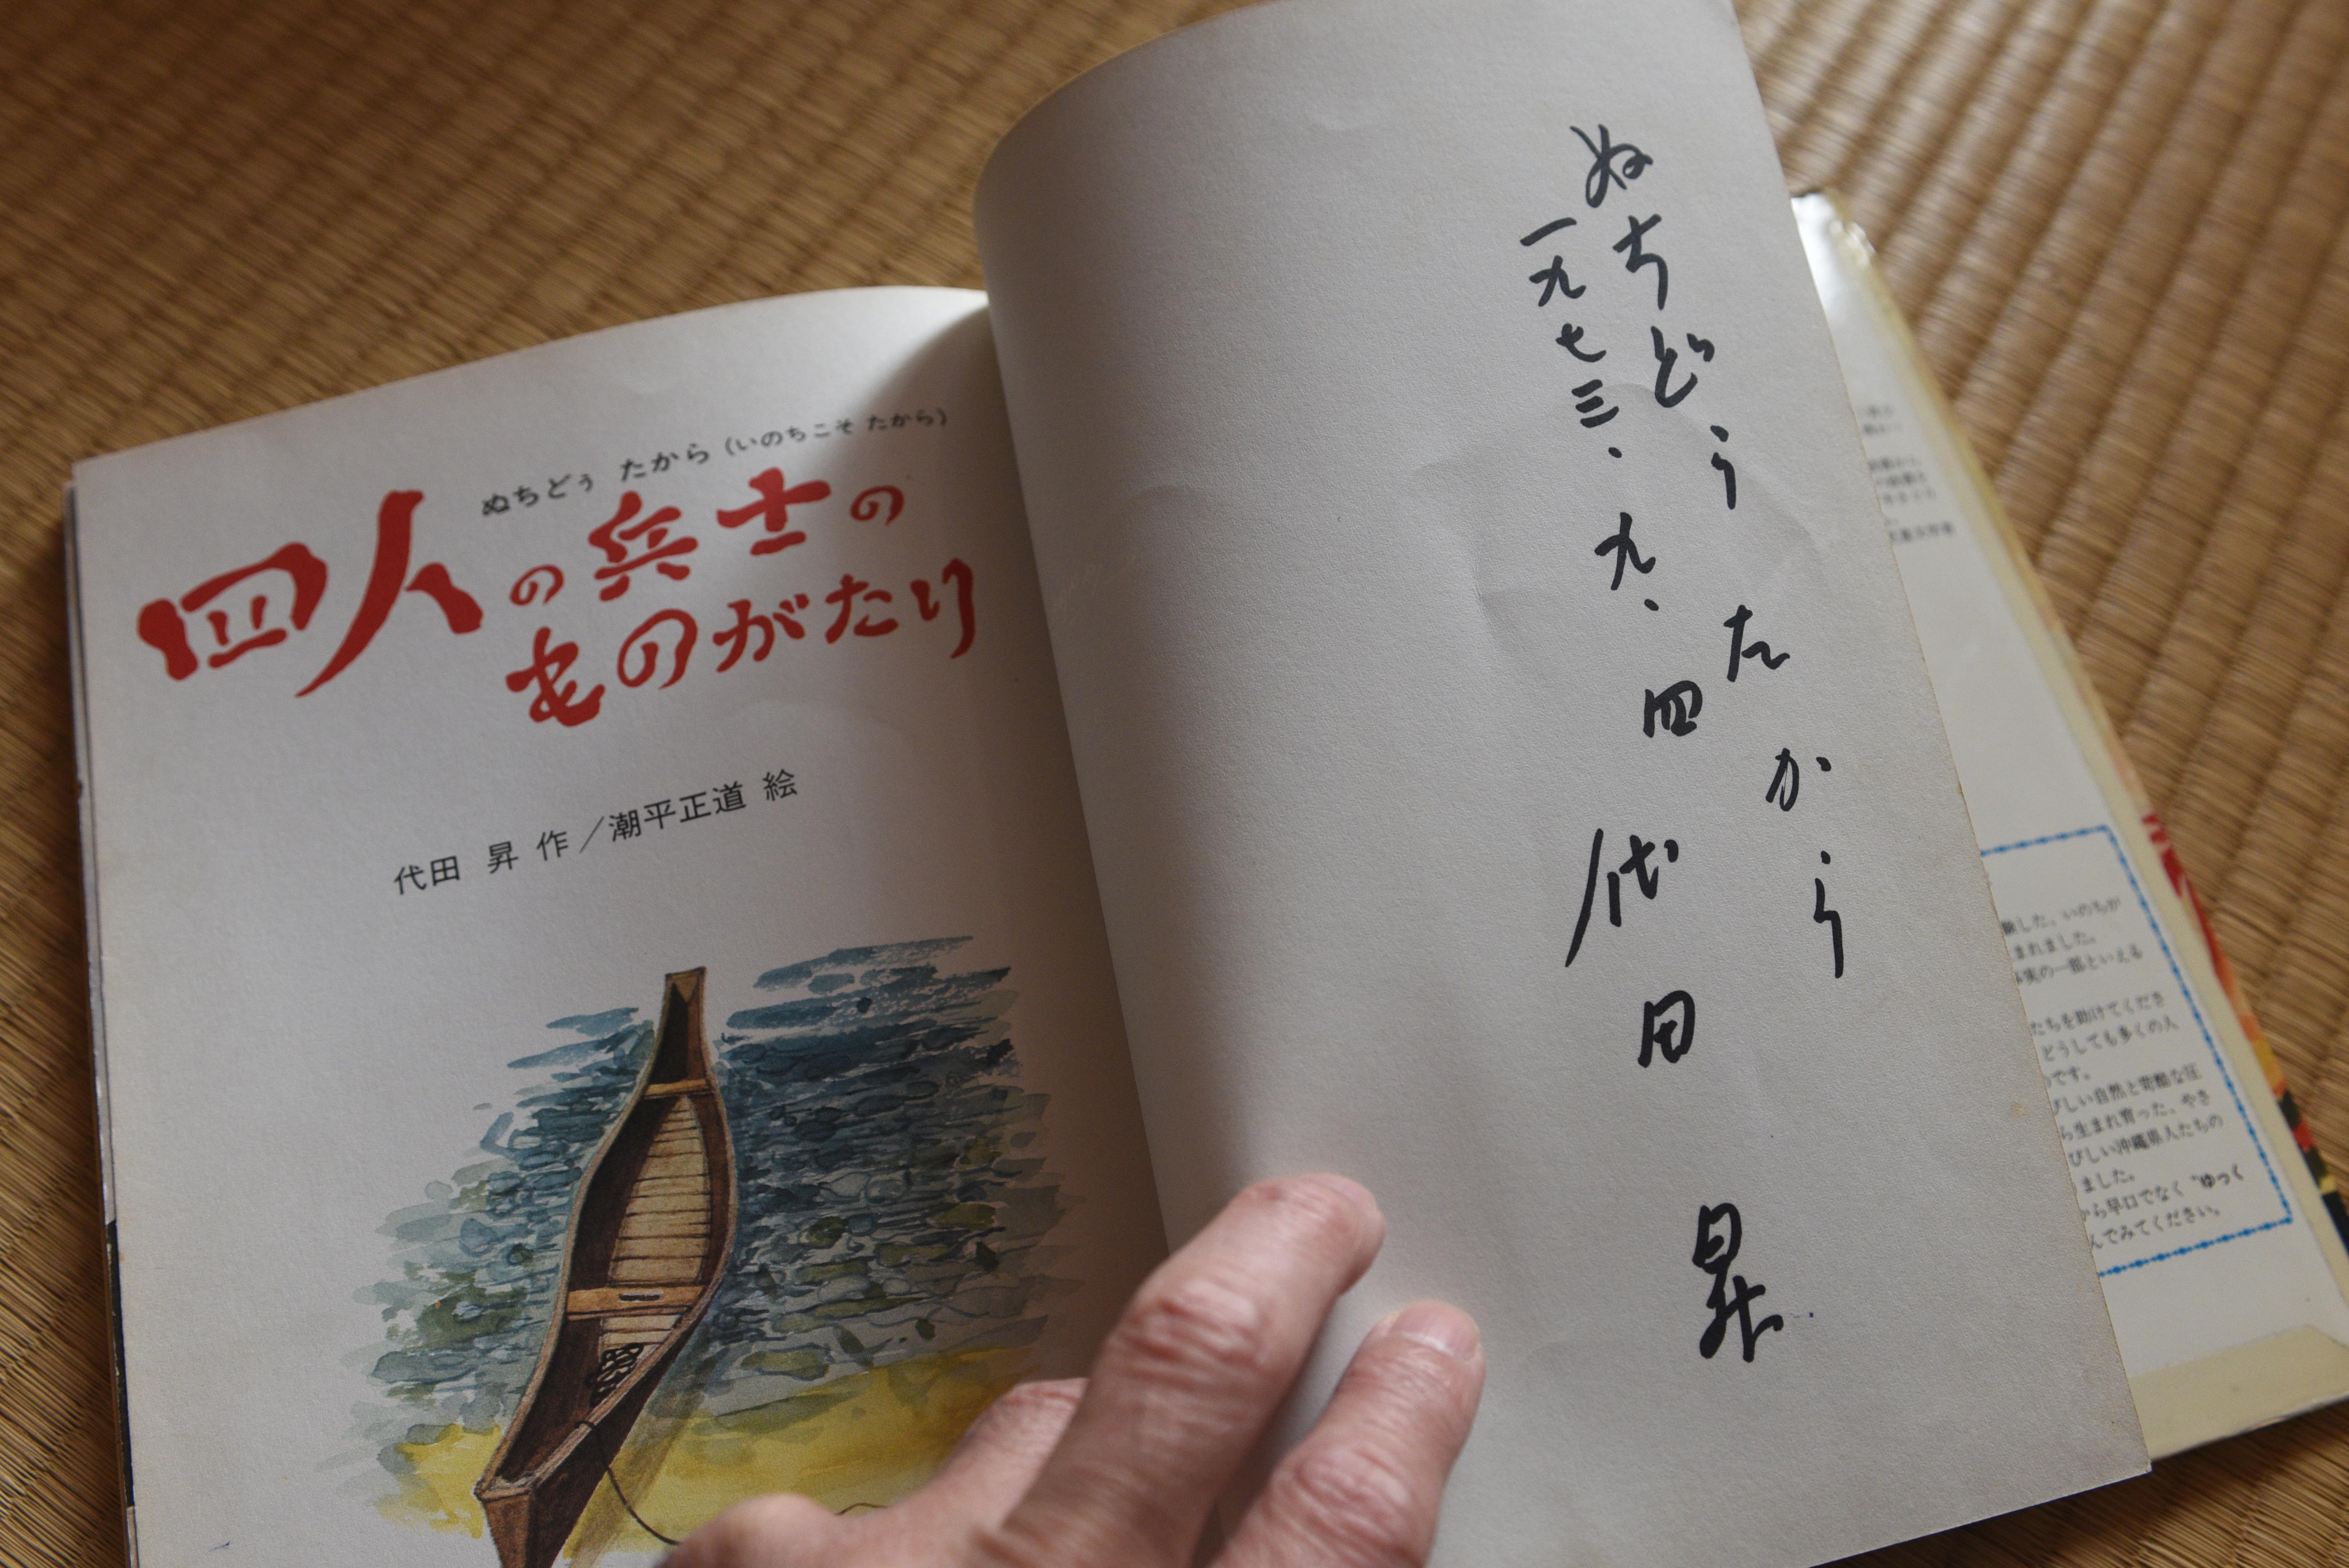 ぬちどぅ たから（いのちこそ たから）
四人の兵士の
ものがたり
代田 昇 作／潮平正道 絵
ぬちどぅ たから
一九七三・九・四
代田 昇
験した、いのちが
まれました。
事実の一部といえる
たちを助けてくださ
どうしても多くの人
のです。
びしい自然と苛酷な圧
ら生まれ育った、やさ
びしい沖縄県人たちの
ました。
から早口でなく“ゆっく
んでみてください。